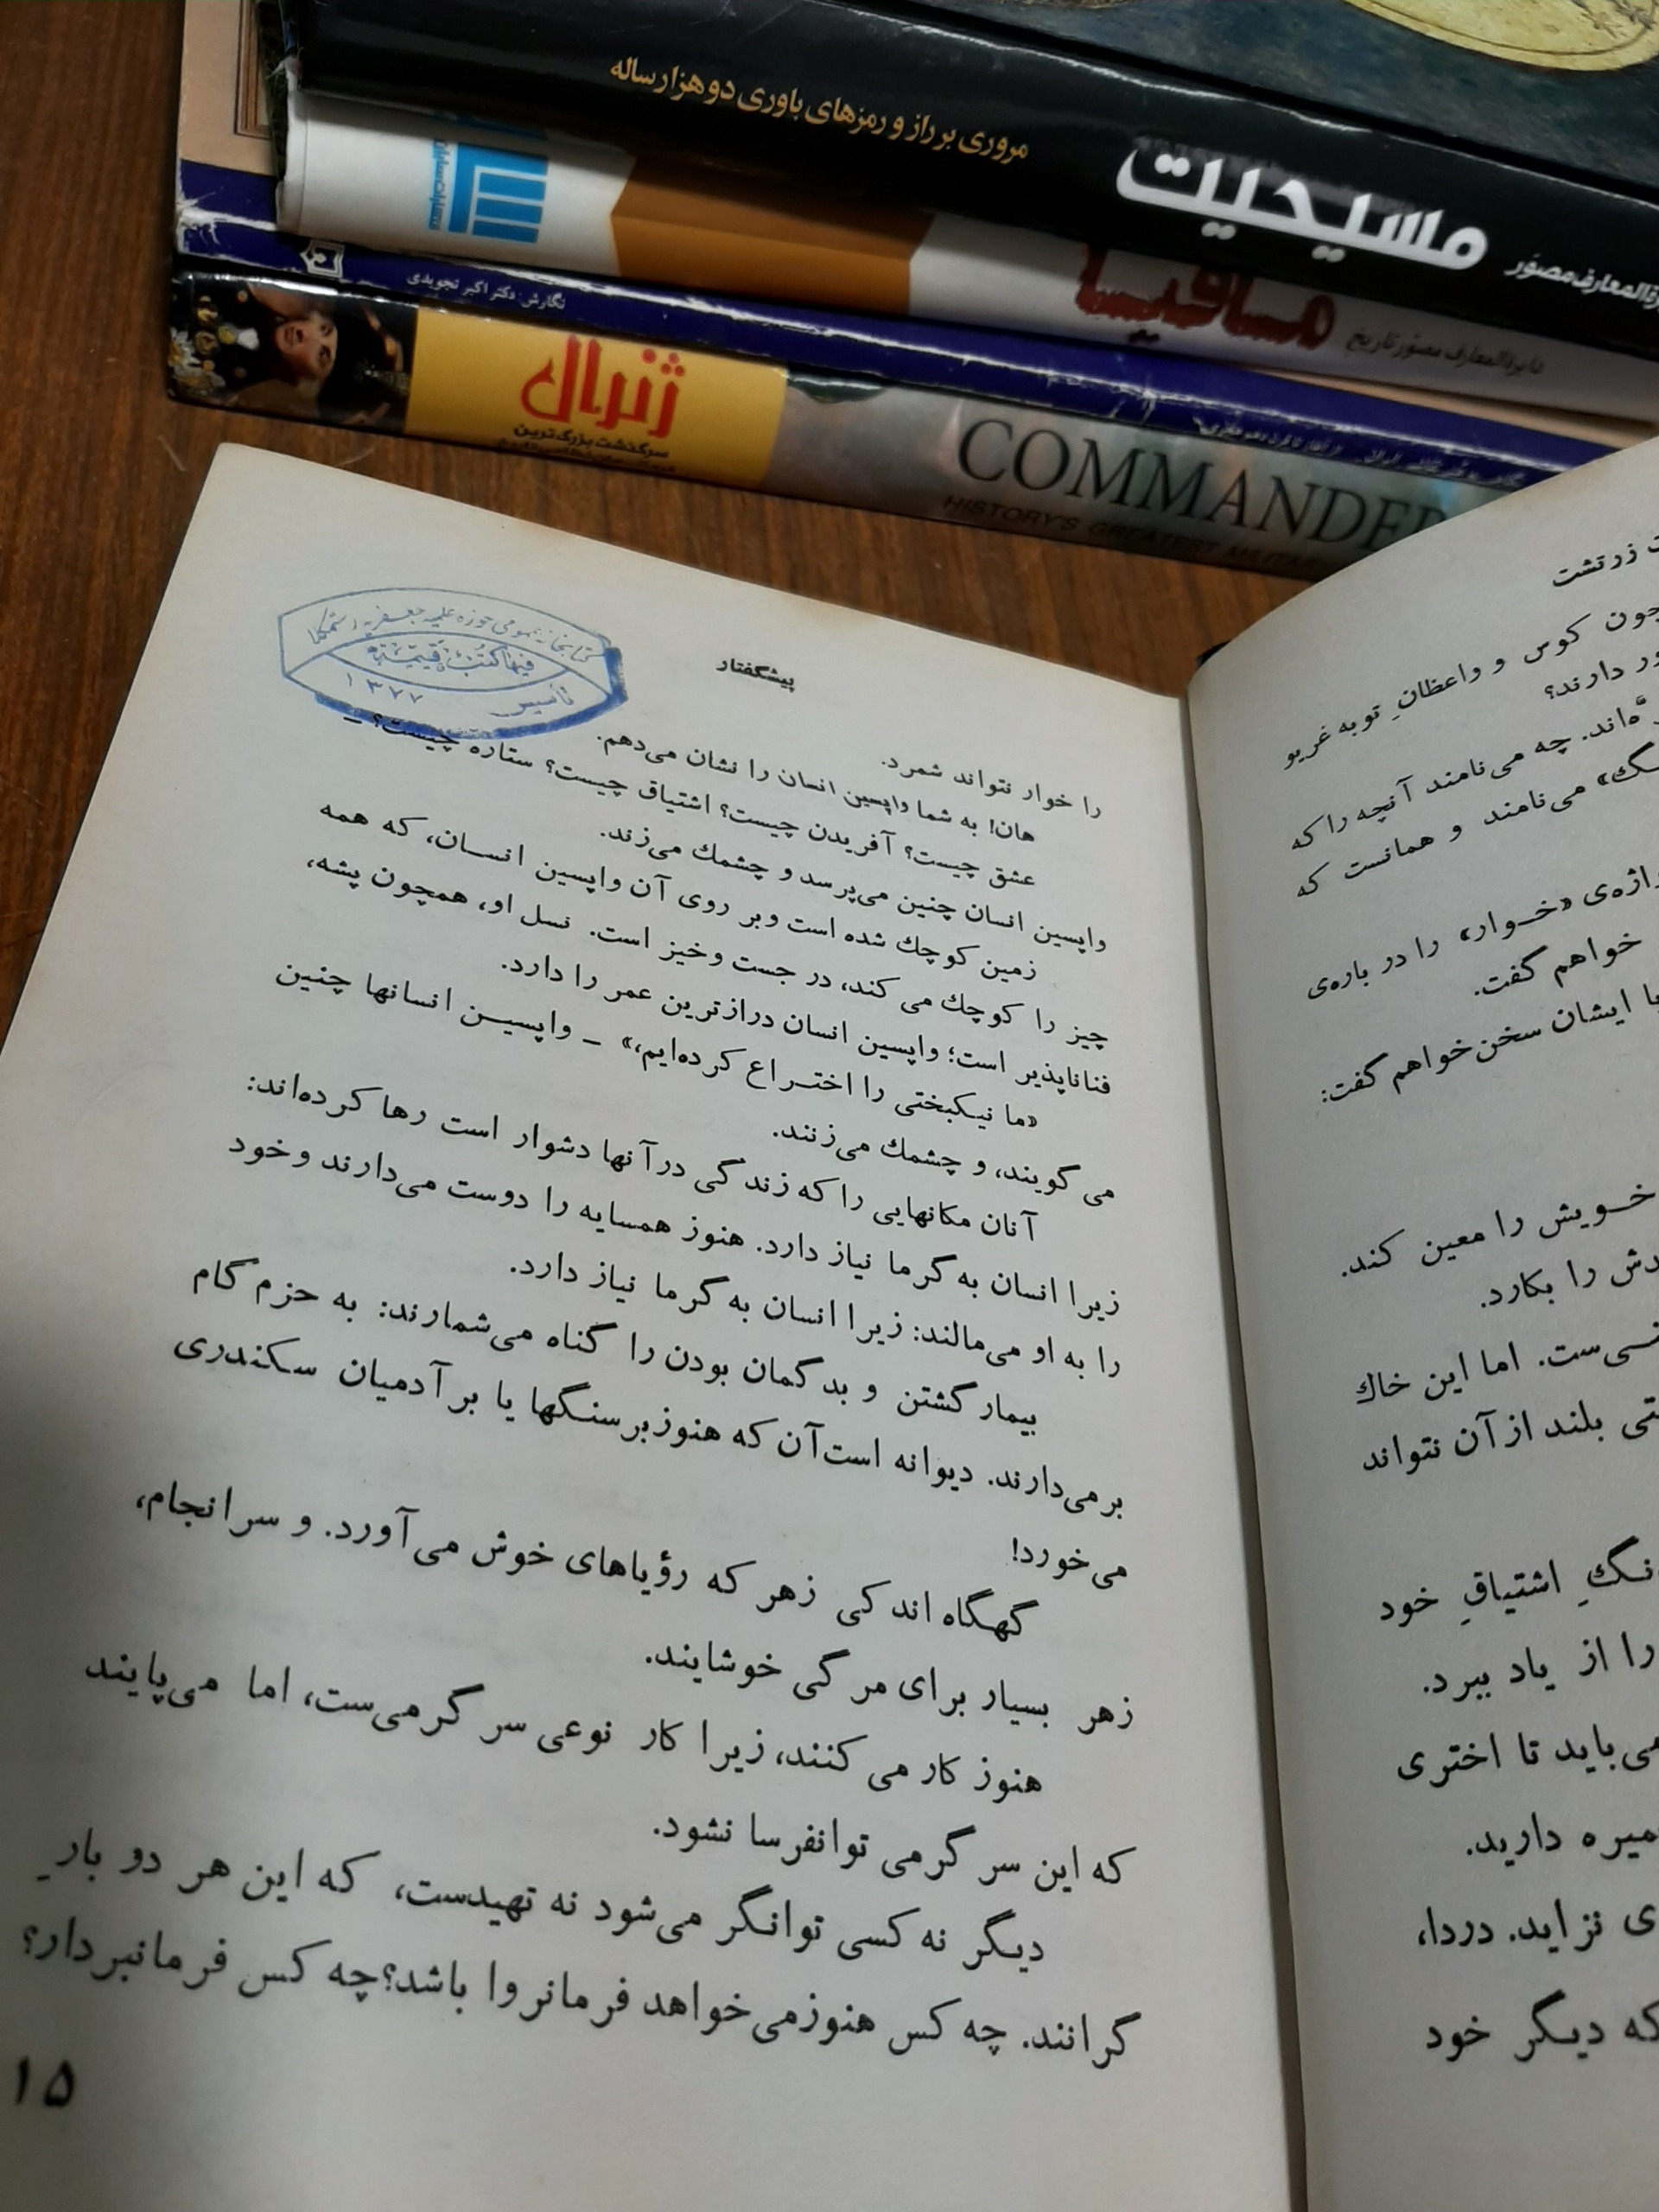 مروری بر راز و رمزهای باوری دو هزار ساله
مسیحیت
مصوّر
مافیا
دایرةالمعارف مصوّر تاریخ
نگارش: دکتر اکبر تجویدی
ژنرال
سرگذشت بزرگ‌ترین
COMMANDER
HISTORY'S GREATEST MILITARY
کتابخانه عمومی حوزه علمیه جعفریه رستمکلا
فیها کتب قیمة
تأسیس ۱۳۷۷
زرتشت
چون کوس و واعظانِ توبه غریو
دارند؟
چه می‌نامند آنچه را که
می‌نامند و همانست که
«خوار» را در باره‌ی
خواهم گفت.
ایشان سخن خواهم گفت:
خویش را معین کند.
را بکارد.
اما این خاك
بلند از آن نتواند
اشتیاقِ خود
را از یاد ببرد.
می‌باید تا اختری
دارید.
نزاید. دردا،
که دیگر خود
پیشگفتار
را خوار نتواند شمرد.
هان! به شما واپسین انسان را نشان می‌دهم.
عشق چیست؟ آفریدن چیست؟ اشتیاق چیست؟ ستاره چیست؟ –
واپسین انسان چنین می‌پرسد و چشمك می‌زند.
زمین کوچك شده است و بر روی آن واپسین انسان، که همه
چیز را کوچك می کند، در جست وخیز است. نسل او، همچون پشه،
فناناپذیر است؛ واپسین انسان درازترین عمر را دارد.
«ما نیکبختی را اختراع کرده‌ایم،» – واپسین انسانها چنین
می گویند، و چشمك می‌زنند.
آنان مکانهایی را که زندگی در آنها دشوار است رها کرده‌اند:
زیرا انسان به گرما نیاز دارد. هنوز همسایه را دوست می‌دارند و خود
را به او می‌مالند: زیرا انسان به گرما نیاز دارد.
بیمار گشتن و بدگمان بودن را گناه می‌شمارند: به حزم گام
بر می‌دارند. دیوانه است آن که هنوز بر سنگها یا بر آدمیان سکندری
می‌خورد!
گهگاه اندکی زهر که رؤیاهای خوش می‌آورد. و سرانجام،
زهر بسیار برای مرگی خوشایند.
هنوز کار می کنند، زیرا کار نوعی سرگرمی‌ست، اما می‌پایند
که این سرگرمی توانفرسا نشود.
دیگر نه کسی توانگر می‌شود نه تهیدست، که این هر دو بارِ
گرانند. چه کس هنوز می‌خواهد فرمانروا باشد؟ چه کس فرمانبردار؟
۱۵